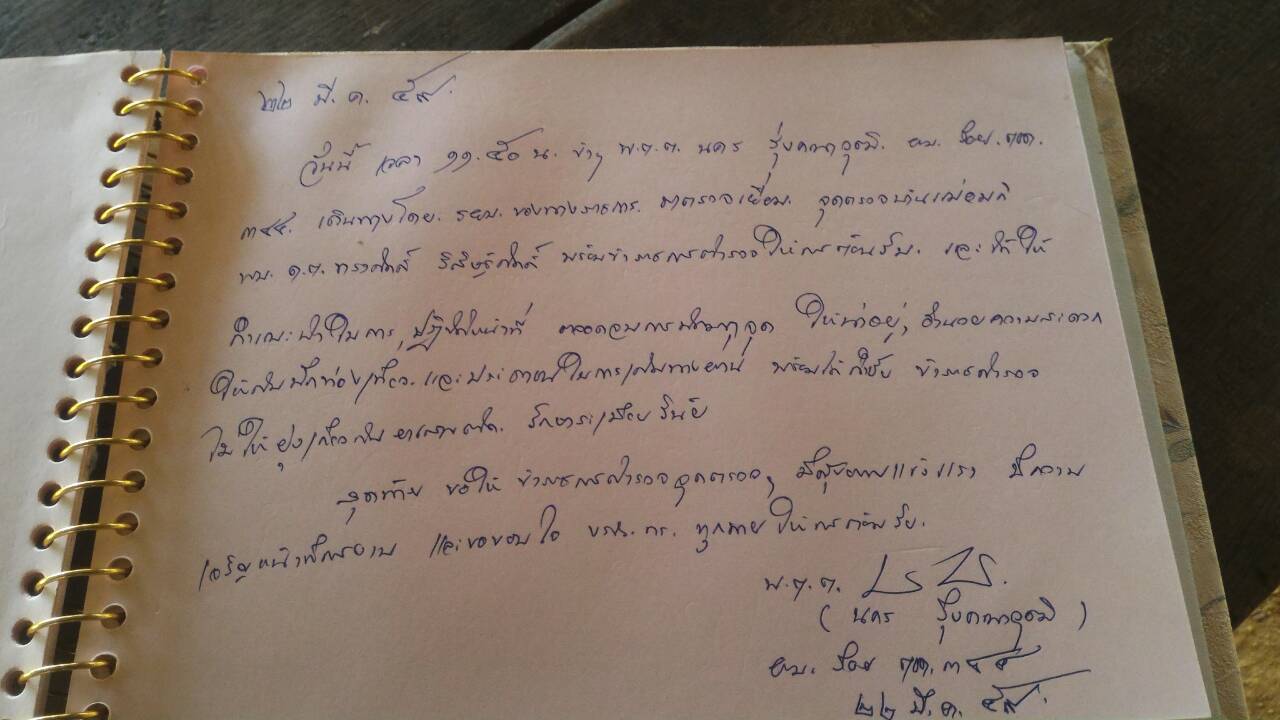 ๒๒ มี.ค. ๕๙.
วันนี้ เวลา ๑๑.๕๐ น. ข้าฯ พ.ต.ต. นคร ผบ. ร้อย. ตชด.
๓๔๔. เดินทางโดย. รยน. ของทางราชการ. มาตรวจเยี่ยม. จุดตรวจบ้านแม่อมกิ
พบ ด.ต. พร้อมข้าราชการตำรวจให้การต้อนรับ. และได้ให้
คำแนะนำในการปฏิบัติหน้าที่ ตลอดจนการพัฒนาจุด ให้น่าอยู่, อำนวยความสะดวก
ให้กับนักท่องเที่ยว. และประชาชนในการเดินทางผ่าน พร้อมได้กำชับ ข้าราชการตำรวจ
ไม่ให้ยุ่งเกี่ยวกับยาเสพติด. รักษาระเบียบวินัย
สุดท้าย ขอให้ ข้าราชการตำรวจจุดตรวจฯ มีสุขภาพแข็งแรง มีความ
เจริญหน้าที่การงาน และขอขอบใจ ทุกนายให้การต้อนรับ.
พ.ต.ต.
( นคร )
ผบ. ร้อย ตชด. ๓๔๔
๒๒ มี.ค. ๕๙.